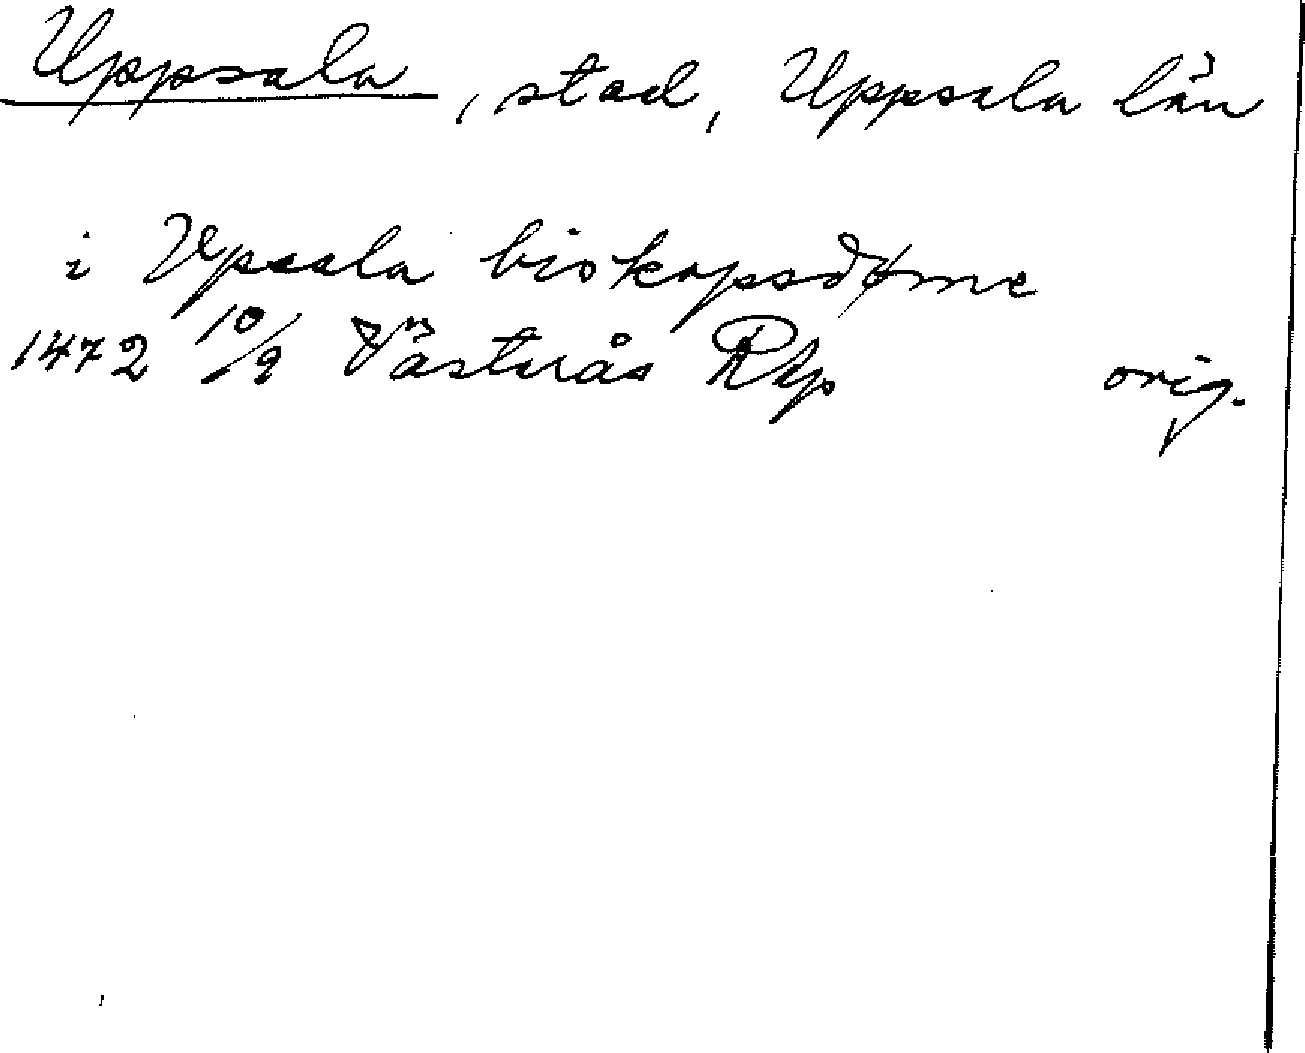 Uppsala, stad, Uppsala län
i Vpsala biskopsdøme
1472 10/9 Västerås RAp orig.